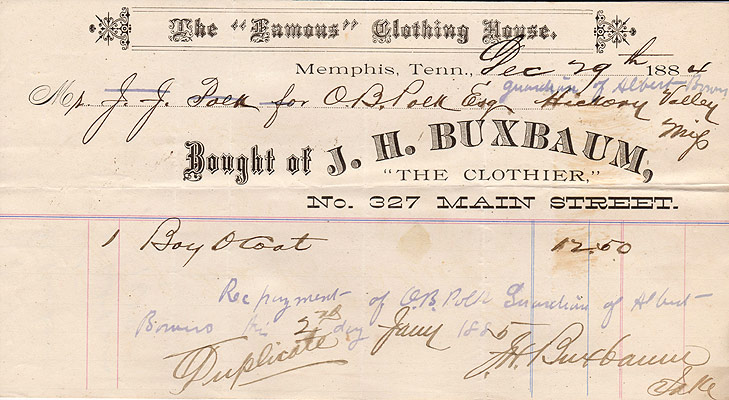 The "Famous" Clothing House.
Memphis, Tenn., Dec 29th 1884
guardian of Albert Bowers
Mr. J. J. Polk for O.B. Polk Esq Hickory Valley
Miss
Bought of J. H. BUXBAUM,
"THE CLOTHIER,"
No. 327 MAIN STREET.
1 Boy O Coat 12.50
Rec payment of O.B. Polk Guardian of Albert
Bowers this 2nd day Jany 1885
Duplicate J.H. Buxbaum